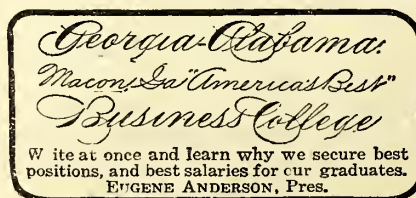 Georgia-Alabama
Macon, Ga "America's Best"
Business College
W ite at once and learn why we secure best
positions, and best salaries for our graduates.
EUGENE ANDERSON, Pres.